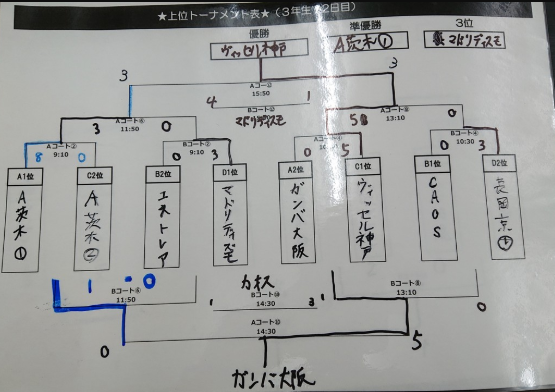 ★上位トーナメント表★（3年生の2日目）
優勝 準優勝 3位
ヴィッセル神戸 A茨木① マドリディスモ
3 3
Aコート⑫
15:50
4 1
Bコート⑫
マドリディスモ
Aコート⑥
11:50
3 0
Aコート⑧
13:10
5 0
Aコート②
9:10
8 0
Bコート②
9:10
0 3
0 5
Bコート④
10:30
0 3
A1位 C2位 B2位 D1位 A2位 C1位 B1位 D2位
A茨木①
A茨木②
エストレア
マドリディスモ
ガンバ大阪
ヴィッセル神戸
CAOS
長岡京
1 - 0
Bコート⑥
11:50
カオス
Bコート⑩
14:30
1 3
Bコート⑧
13:10
0
Aコート⑩
14:30
0 5
ガンバ大阪